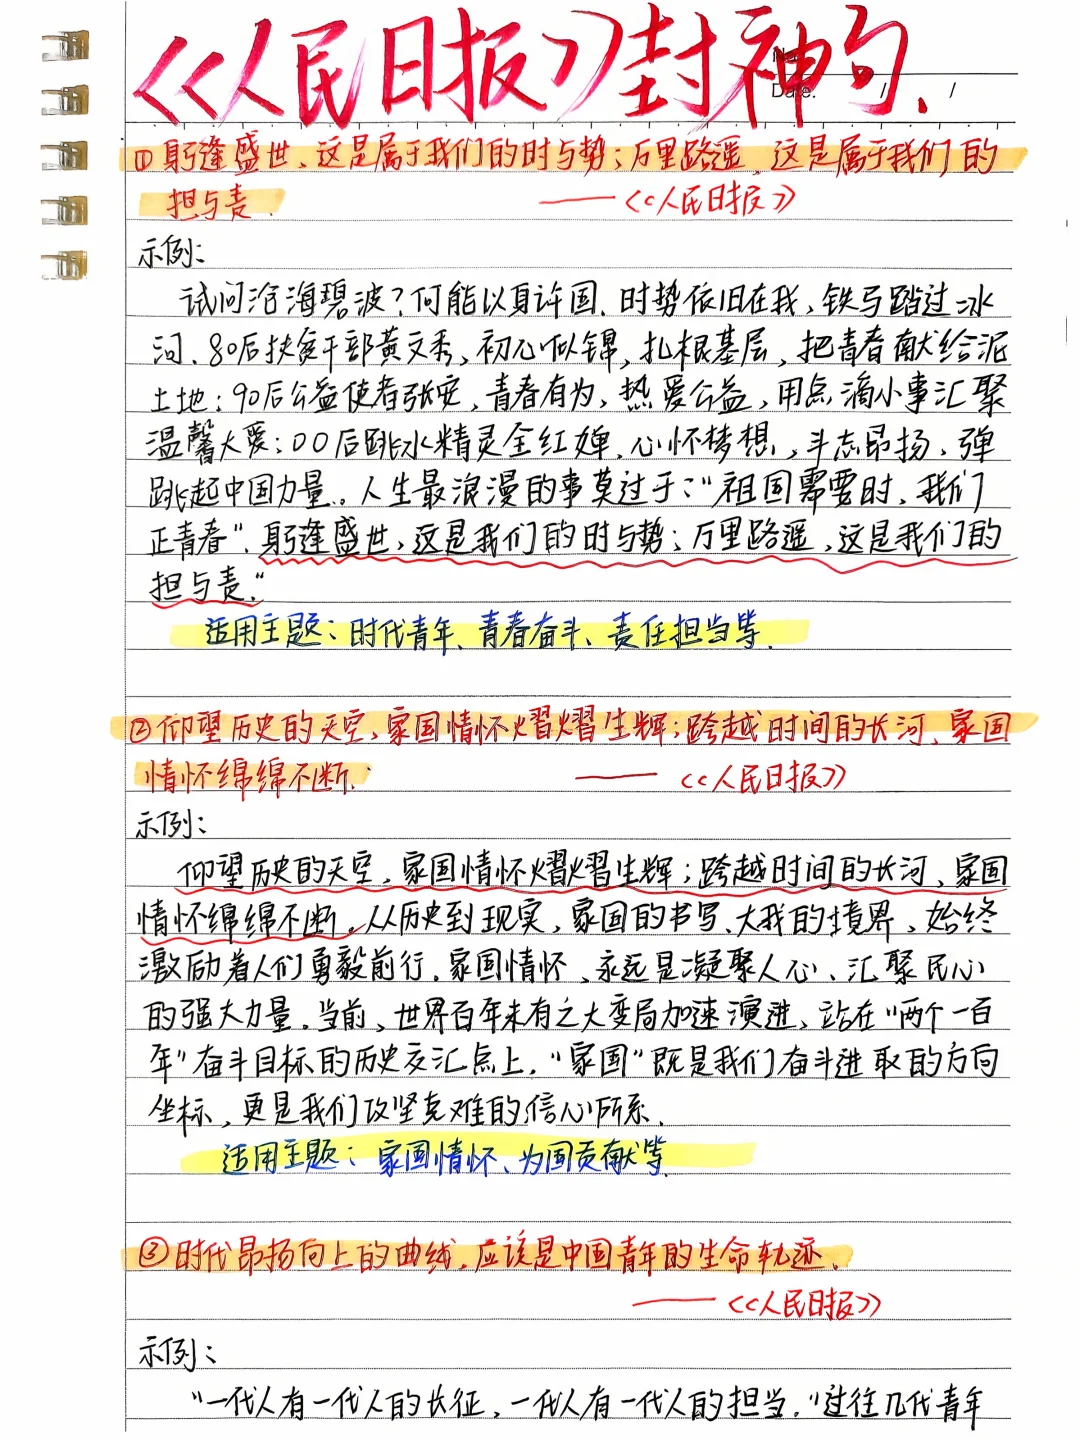 《人民日报》封神句.
No.
Date. / /
① 躬逢盛世、这是属于我们的时与势;万里路遥、这是属于我们的
担与责.
——《人民日报》
示例:
试问沧海碧波?何能以身许国.时势依旧在我,铁马踏过冰
河.80后扶贫干部黄文秀,初心似锦,扎根基层,把青春献给泥
土地;90后公益使者张安,青春有为,热爱公益,用点滴小事汇聚
温馨大爱;00后跳水精灵全红婵,心怀梦想,斗志昂扬,弹
跳起中国力量.。人生最浪漫的事莫过于:"祖国需要时,我们
正青春".躬逢盛世,这是我们的时与势;万里路遥,这是我们的
担与责."
适用主题:时代青年、青春奋斗、责任担当等.
②仰望历史的天空,家国情怀熠熠生辉;跨越时间的长河、家国
情怀绵绵不断.
——《人民日报》
示例:
仰望历史的天空,家国情怀熠熠生辉;跨越时间的长河、家国
情怀绵绵不断。从历史到现实,家国的书写、大我的境界,始终
激励着人们勇毅前行.家国情怀,永远是凝聚人心、汇聚民心
的强大力量.当前,世界百年未有之大变局加速演进,站在"两个一百
年"奋斗目标的历史交汇点上."家国"既是我们奋斗进取的方向
坐标,更是我们攻坚克难的信心所系.
适用主题:家国情怀、为国贡献等.
③时代昂扬向上的曲线,应该是中国青年的生命轨迹.
——《人民日报》
示例:
"一代人有一代人的长征,一代人有一代人的担当."过往几代青年